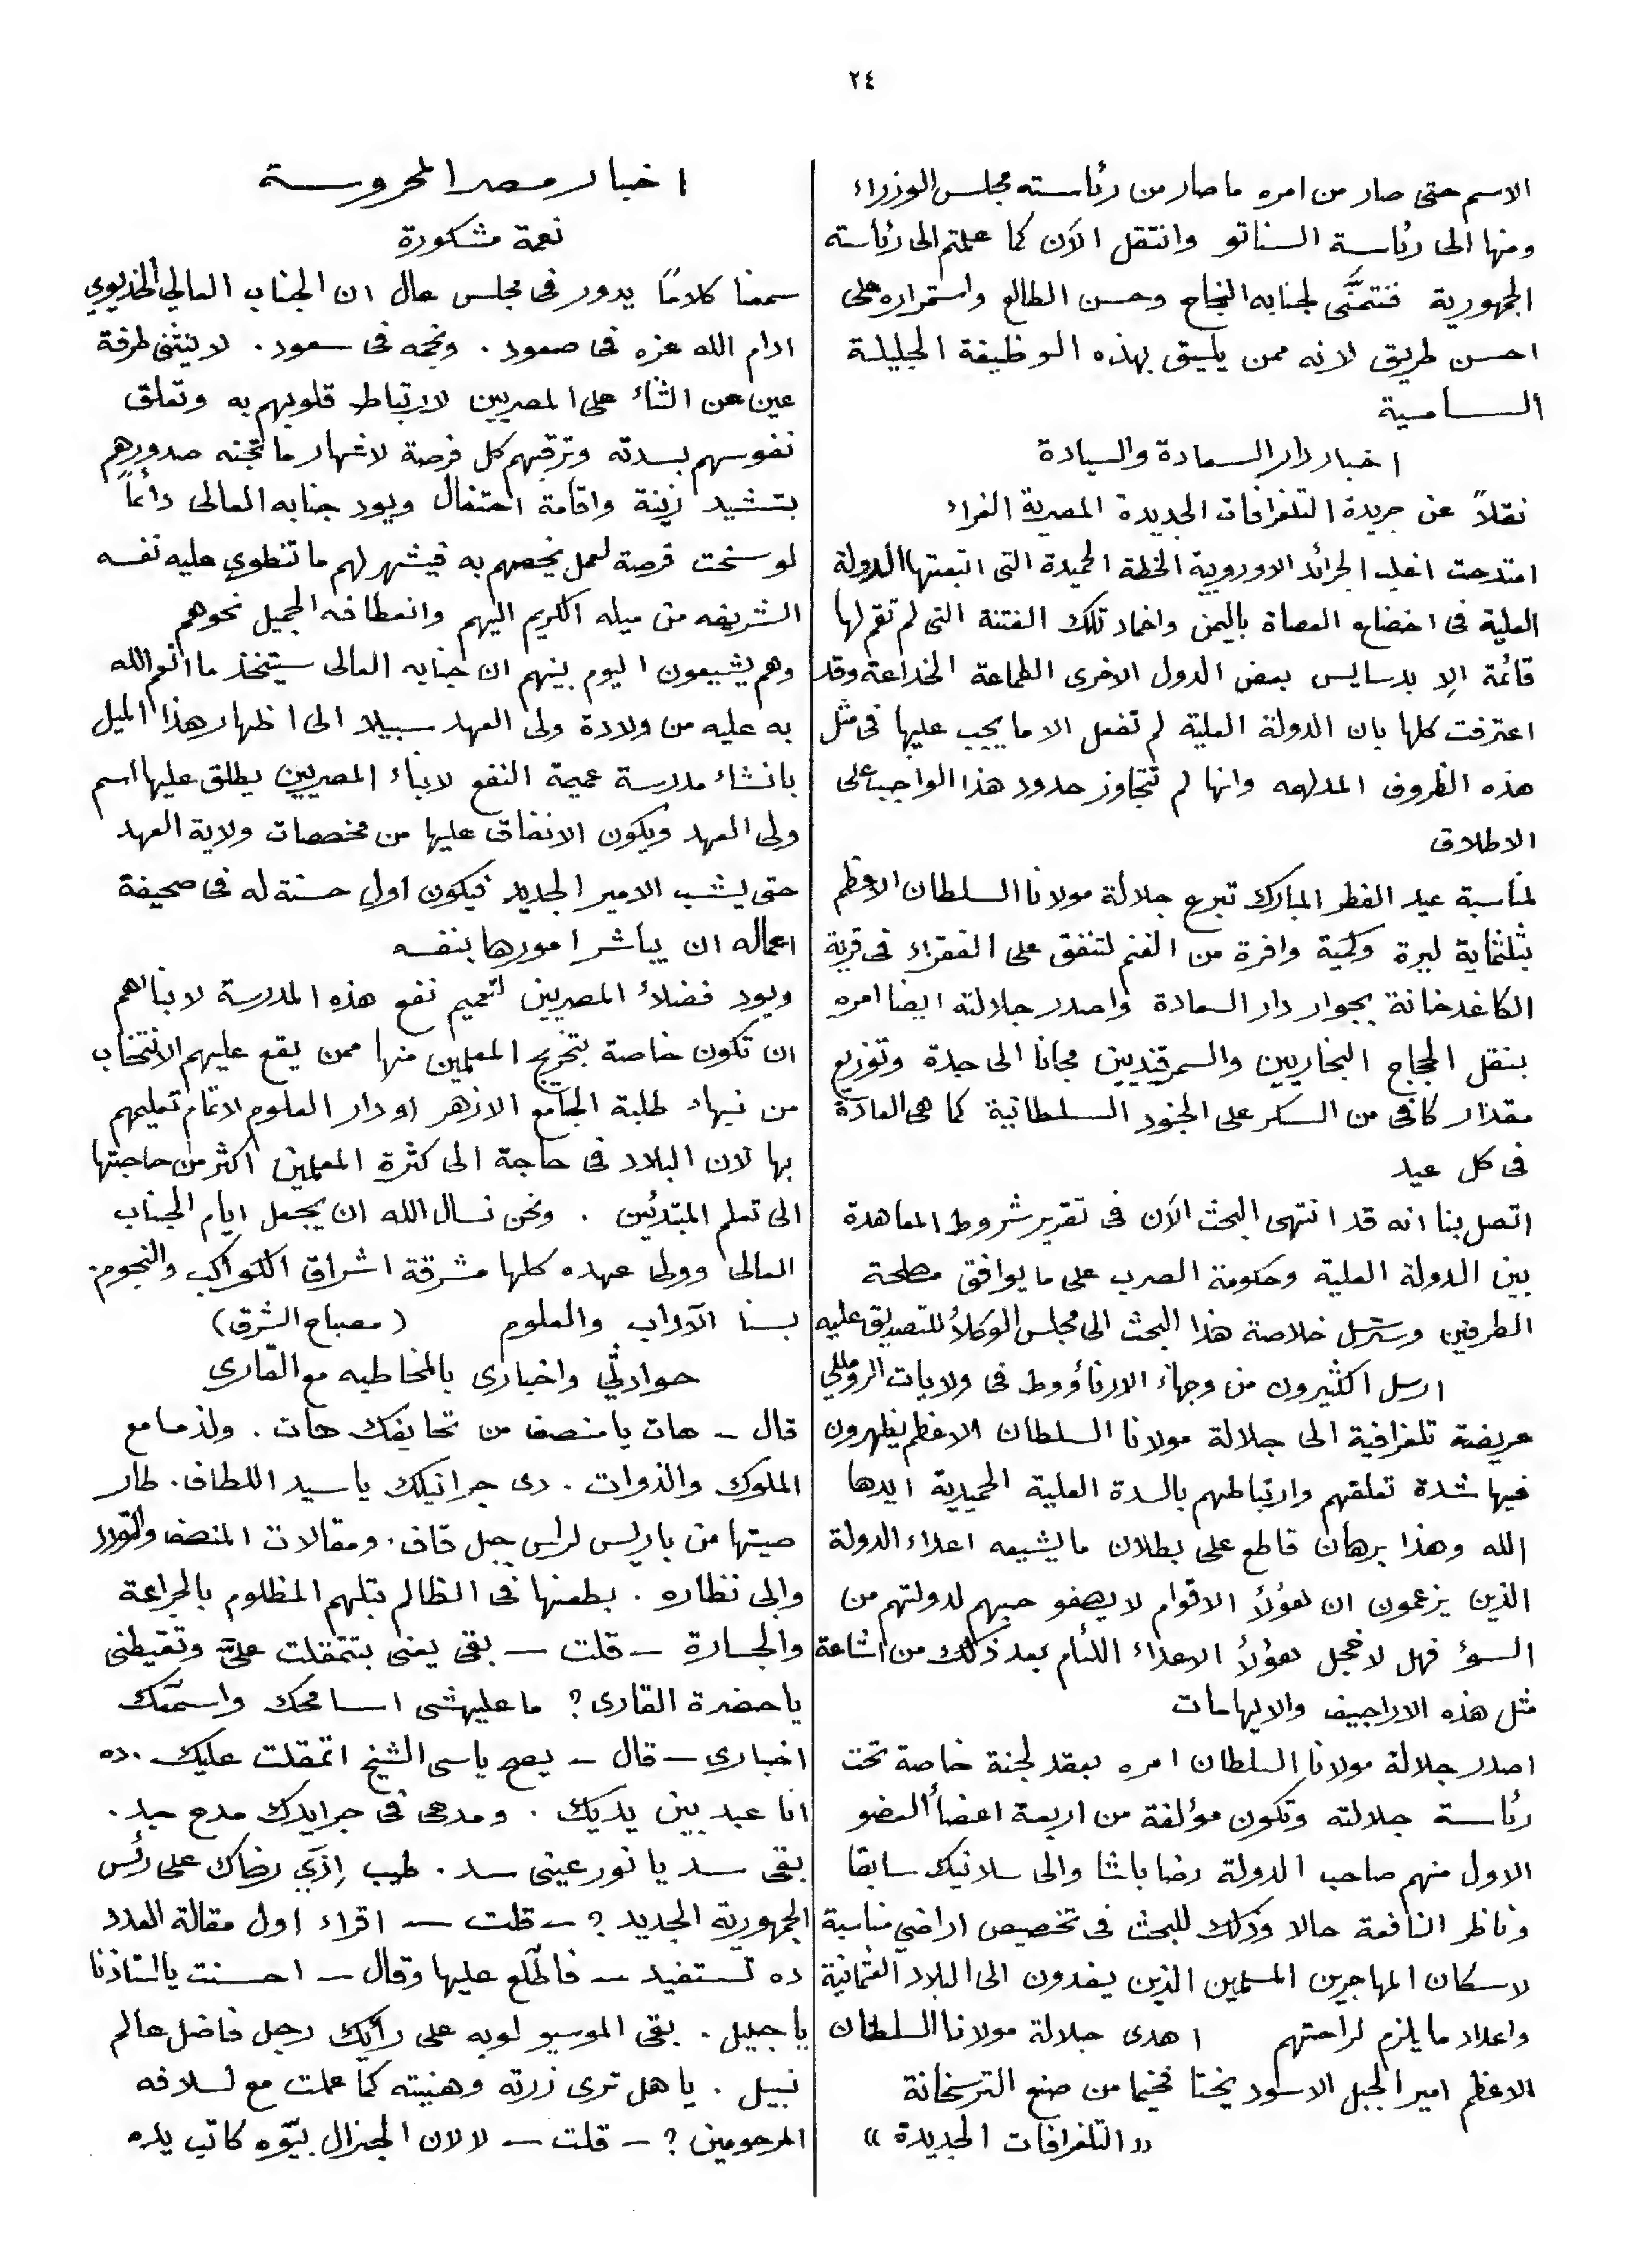 ٢٤
الاسم حتى صار من امره ما صار من رئاسته مجلس الوزراء
ومنها الى رئاسة السناتو وانتقل الآن كما علمتم الى رئاسته
الجمهورية فنتمنَّى لجنابه النجاح وحسن الطالع واستمراره على
احسن طريق لانه ممن يليق بهذه الوظيفة الجليلة
السامية
اخبار دار السعادة والسيادة
نقلاً عن جريدة التلغرافات الجديدة المصرية الغراء
امتدحت اغلب الجرائد الاوروبية الخطة الحميدة التى اتبعتها الدولة
العلية فى اخضاع العصاة باليمن واخماد تلك الفتنة التى لم تقم لها
قائمة الا بدسايس بعض الدول الاخرى الطماعة الخداعة وقد
اعترفت كلها بان الدولة العلية لم تفعل الا ما يجب عليها فى مثل
هذه الظروف المدلهمه وانها لم تتجاوز حدود هذا الواجب على
الاطلاق
لمناسبة عيد الفطر المبارك تبرع جلالة مولانا السلطان الاعظم
بثلثماية ليرة وكمية وافرة من الغنم لتنفق على الفقراء فى قرية
الكاغدخانة بجوار دار السعادة واصدر جلالته ايضا امره
بنقل الحجاج البخاريين والسمرقنديين مجانا الى جدة وتوزيع
مقدار كافى من السكر على الجنود السلطانية كما هى العادة
فى كل عيد
اتصل بنا انه قد انتهى البحث الآن فى تقرير شروط المعاهدة
بين الدولة العلية وحكومة الصرب على ما يوافق مصلحة
الطرفين وسترسل خلاصة هذا البحث الى مجلس الوكلاء للتصديق عليه
ارسل الكثيرون من وجهاء الارناؤوط فى ولايات الروملي
عريضة تلغرافية الى جلالة مولانا السلطان الاعظم يظهرون
فيها شدة تعلقهم وارتباطهم بالسدة العلية الحميدية ايدها
الله وهذا برهان قاطع على بطلان ما يشيعه اعداء الدولة
الذين يزعمون ان هؤلاء الاقوام لا يصفو حبهم لدولتهم من
السؤ فهل لا خجل هؤلاء الاعداء اللئام بعد ذلك من اشاعة
مثل هذه الاراجيف والايهامات
اصدر جلالة مولانا السلطان امره بعقد لجنة خاصة تحت
رئاسة جلالته وتكون مؤلفة من اربعة اعضاء العضو
الاول منهم صاحب الدولة رضا باشا والى سلانيك سابقا
وناظر النافعة حالا وذلك للبحث فى تخصيص اراضي مناسبة
لاسكان المهاجرين المسلمين الذين يفدون الى البلاد العثمانية
واعداد ما يلزم لراحتهم اهدى جلالة مولانا السلطان
الاعظم امير الجبل الاسود يختا فخيما من صنع الترسخانة
« التلغرافات الجديدة »
اخبار مصر المحروسة
نعمة مشكورة
سمعنا كلاماً يدور فى مجلس عال ان الجناب العالي الخديوي
ادام الله عزه فى صعود . ونجمه فى سعود . لا ينثني طرفة
عين عن الثناء على المصريين لارتباط قلوبهم به وتعلق
نفوسهم بسدته وترقبهم كل فرصة لاشهار ما تجنه صدورهم
بتشيد زينة واقامة احتفال ويود جنابه العالى دائماً
لو سنحت فرصة لعمل يخصهم به فيشهر لهم ما تنطوي عليه نفسه
الشريفه من ميله الكريم اليهم وانعطافه الجميل نحوهم
وهم يشيعون اليوم بينهم ان جنابه العالى سيتخذ ما انعم الله
به عليه من ولادة ولى العهد سبيلا الى اظهار هذا الميل
بانشاء مدرسة عميمة النفع لابناء المصريين يطلق عليها اسم
ولى العهد ويكون الانفاق عليها من مخصصات ولاية العهد
حتى يشب الامير الجديد فيكون اول حسنة له فى صحيفة
اعماله ان يباشر امورها بنفسه
ويود فضلاء المصريين لتعميم نفع هذه المدرسة لابنائهم
ان تكون خاصة بتخريج المعلمين منها ممن يقع عليهم الانتخاب
من نبهاء طلبة الجامع الازهر او دار العلوم لاتمام تعليمهم
بها لان البلاد فى حاجة الى كثرة المعلمين اكثر من حاجتها
الى تعلم المبتدئين . ونحن نسال الله ان يجعل ايام الجناب
العالى وولى عهده كلها مشرقة اشراق الكواكب والنجوم.
بسنا الآداب والعلوم (مصباح الشرق)
حوادثي واخبارى بالمخاطبه مع القارى
قال – هات يا منصف من تحايفك هات . ولذ مامع
الملوك والذوات . دى جرانيلك يا سيد اللطاف . طار
صيتها من باريس لراس جبل قاف . ومقالات المنصف والتودد
وابى نظاره . بطعنها فى الظالم بتلهم المظلوم بالجراءة
والجسارة – قلت – بقى يعنى بتتمقلت علىَّ وتغيظنى
يا حضرة القارى ؟ ما عليهشى اسامحك واسمّعك
اخبارى – قال – يصح ياسى الشيخ اتمقلت عليك . ده
انا عبد بين يديك . ومدحى فى جرايدك مدح جد .
بقى سد يا نور عينى سد . طيب إزّي رضاك على رئس
الجمهورية الجديد ؟ – قلت – اقراء اول مقالة العدد
ده تستفيد – فاطّلع عليها وقال – احسنت يا استاذنا
يا جليل . بقى الموسيو لوبه على رأيك رجل فاضل عالم
نبيل . يا هل ترى زرته وهنيته كما عملت مع اسلافه
المرحومين ؟ – قلت – لا لان الجنرال بيّوه كاتب يده